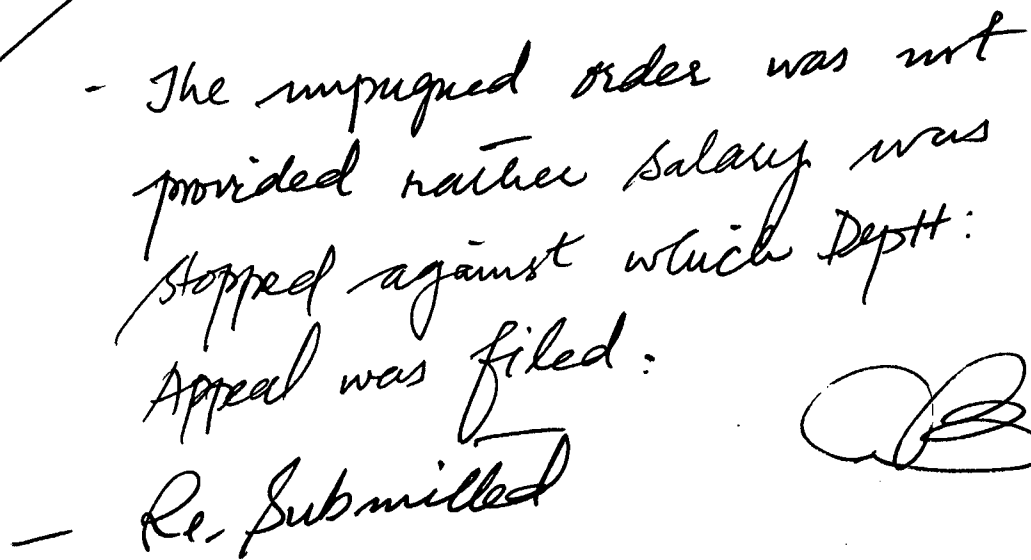 - The impugned order was not
provided rather salary was
stopped against which Deptt:
Appeal was filed.
- Re. Submitted